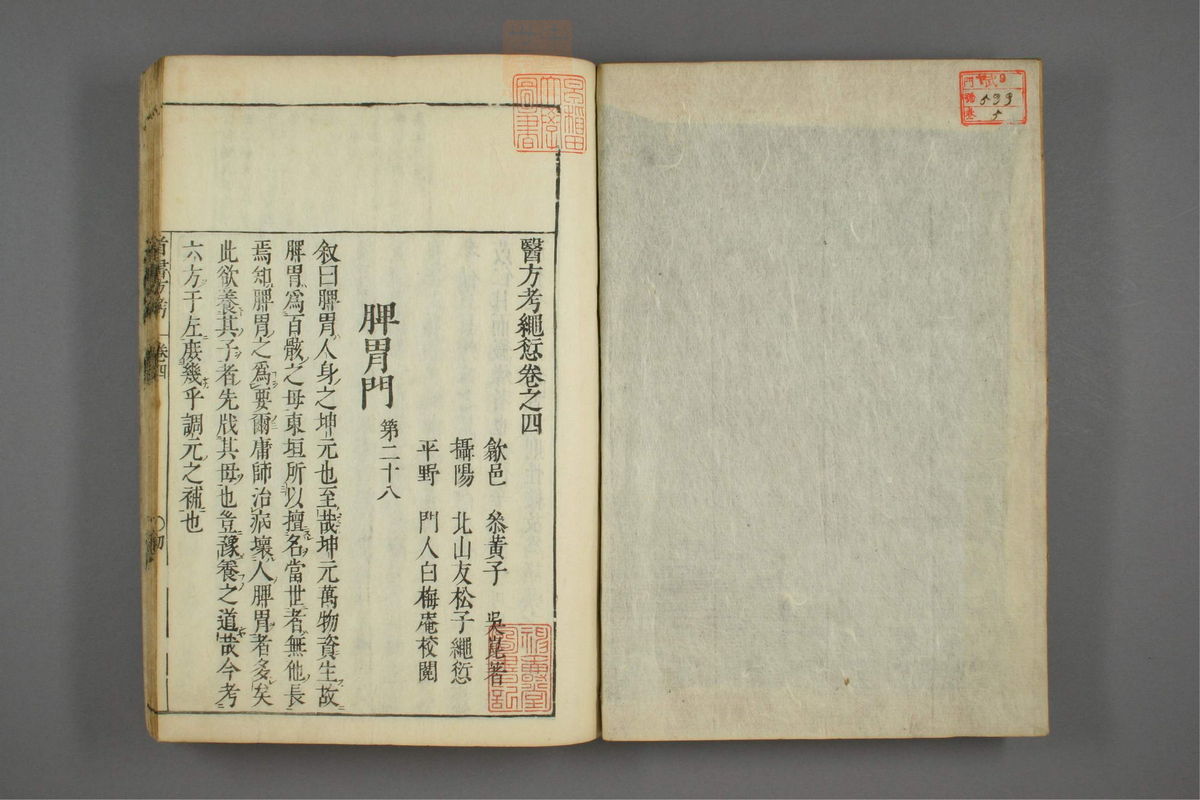 醫方考繩愆卷之四
歙邑 叅黃子 吳崑著
攝陽 北山友松子繩愆
平野 門人白梅庵校閱
脾胃門 第二十八
叙曰脾胃人身之坤元也至哉坤元萬物資生故
脾胃爲百骸之母東垣所以擅名當世者無他長
焉知脾胃之爲要爾庸師治病壞人脾胃者多矣
此欲養其子者先戕其母也豈豫養之道哉今考
六方于左庶幾乎調元之補也
卷四
早稻田大學圖書
599
5